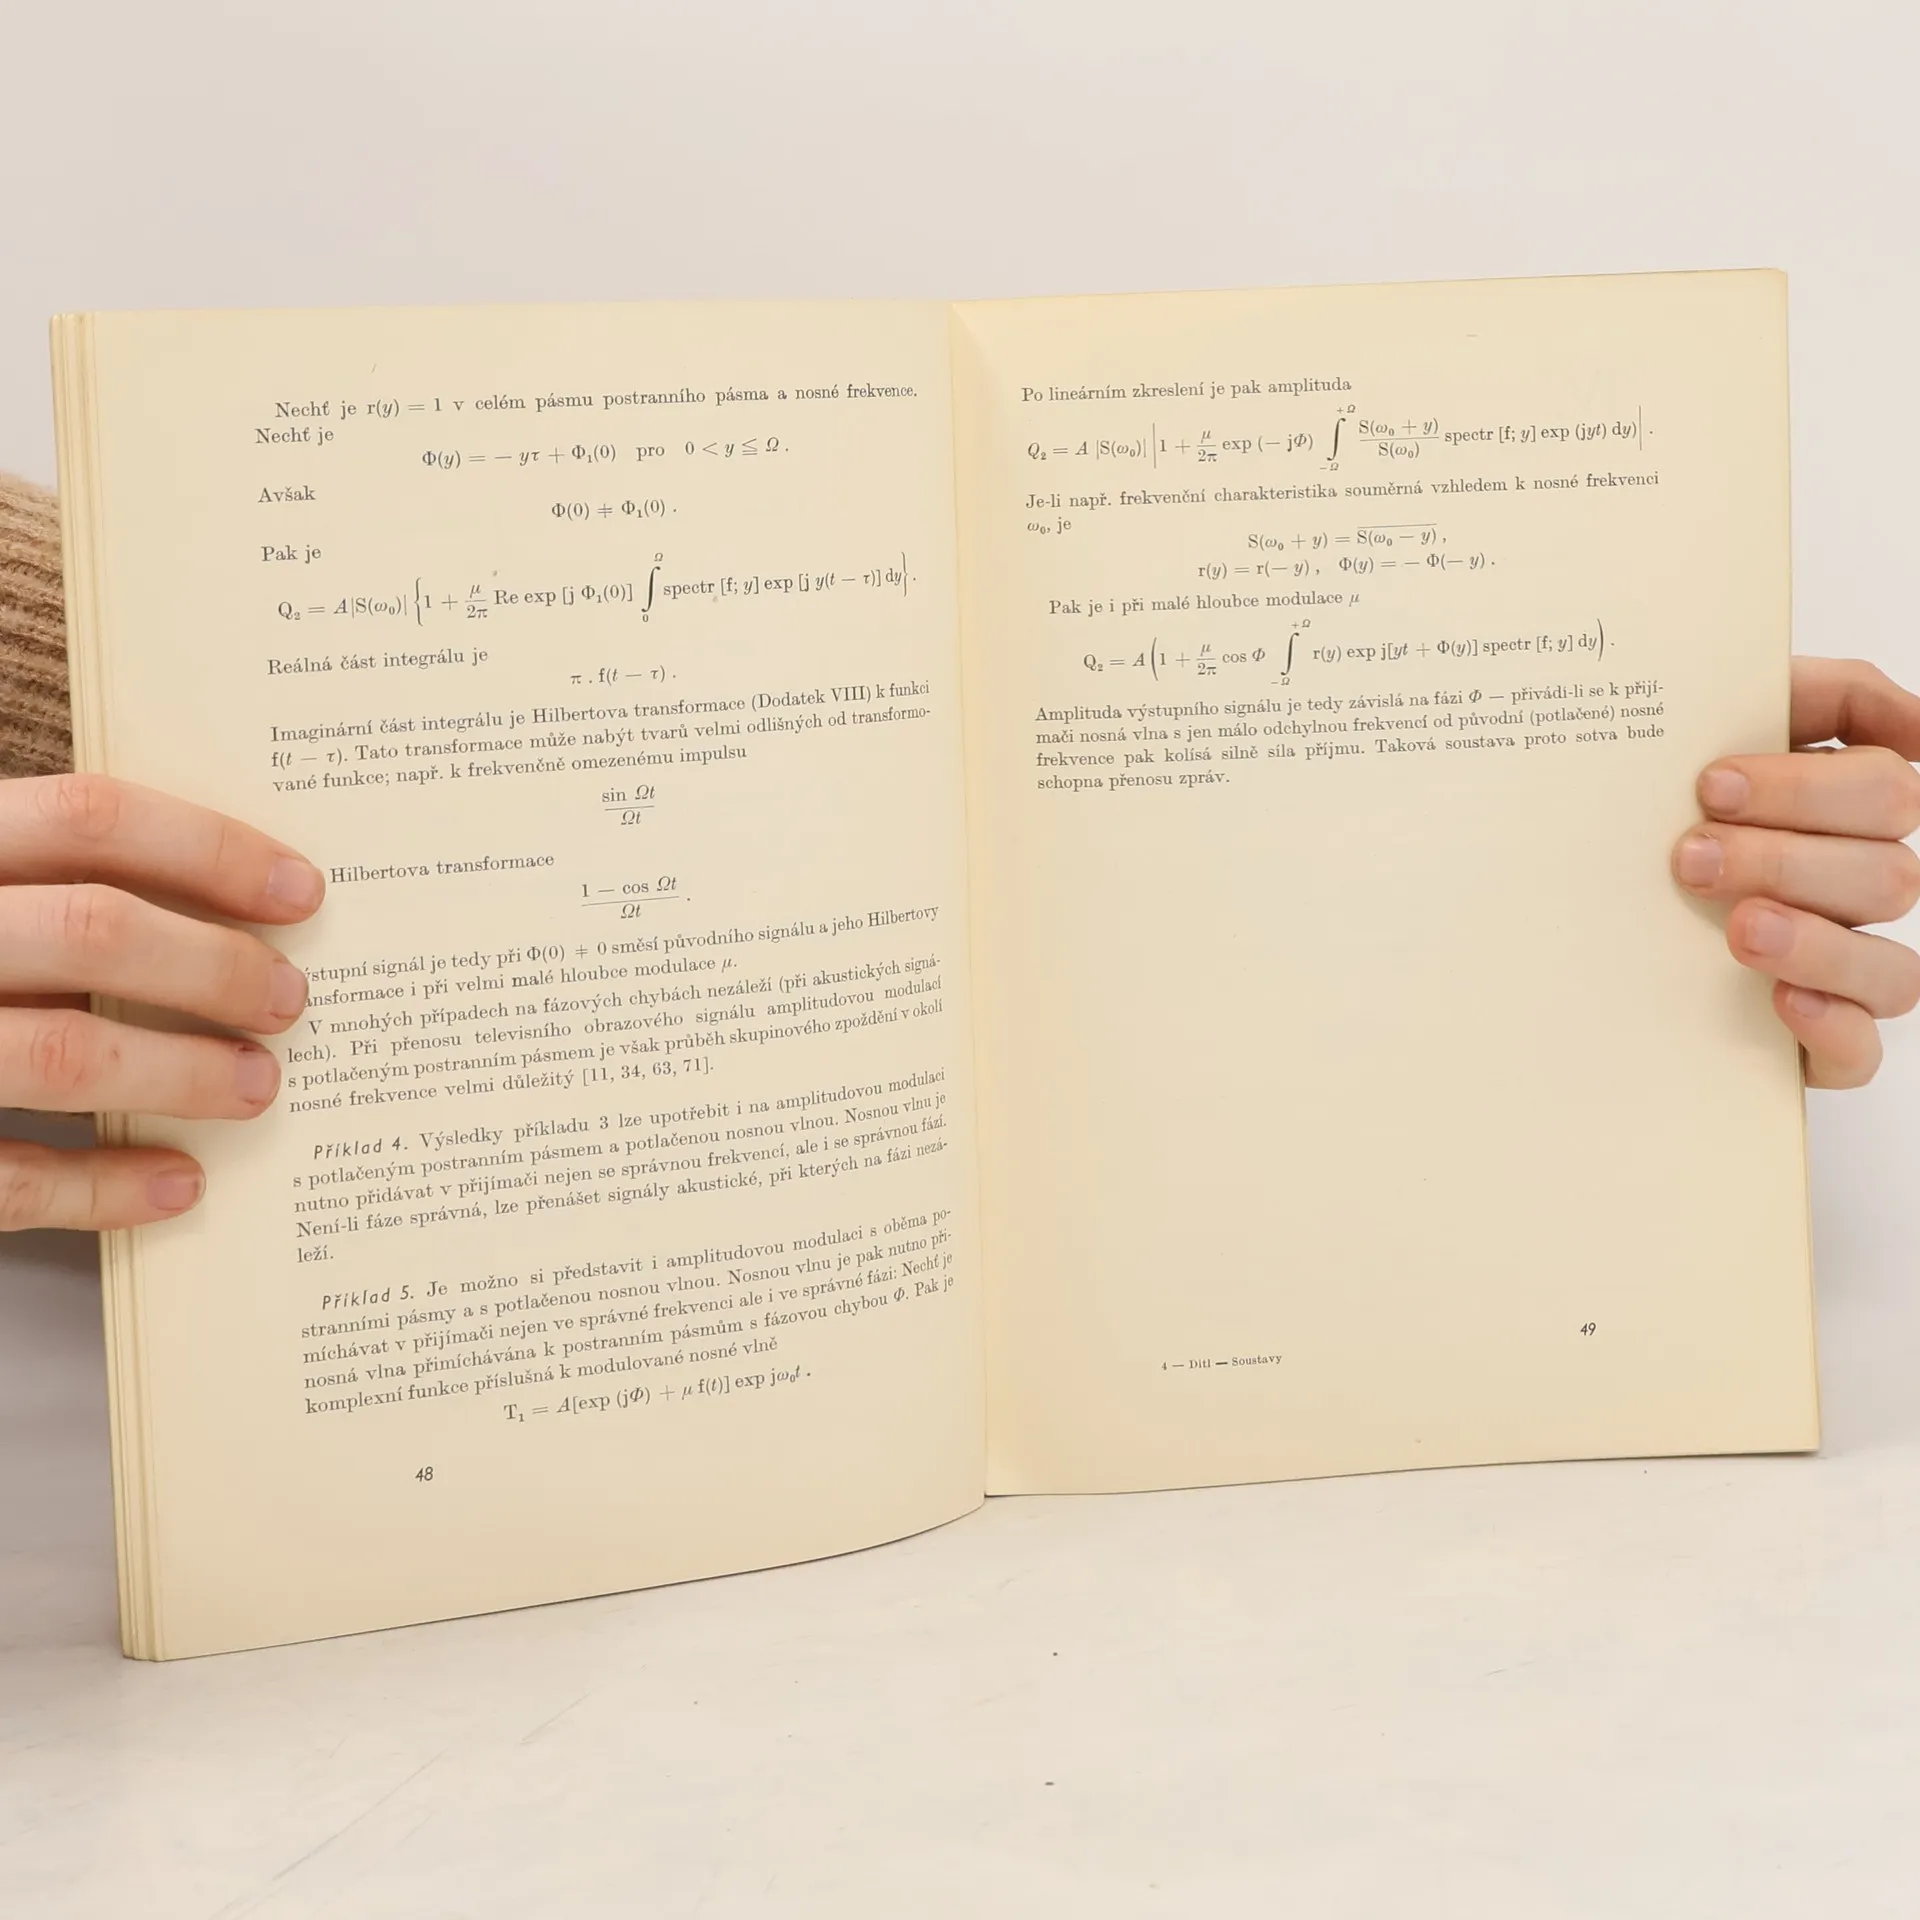 Nechť je r(y) = 1 v celém pásmu postranního pásma a nosné frekvence.
Nechť je
Φ(y) = − yτ + Φ₁(0) pro 0 < y ≦ Ω .
Avšak
Φ(0) ≠ Φ₁(0) .
Pak je
Q₂ = A|S(ω₀)| {1 + μ/2π Re exp [j Φ₁(0)] ∫₀^Ω spectr [f; y] exp [j y(t − τ)] dy} .
Reálná část integrálu je
π . f(t − τ) .
Imaginární část integrálu je Hilbertova transformace (Dodatek VIII) k funkci
f(t − τ). Tato transformace může nabýt tvarů velmi odlišných od transformo-
vané funkce; např. k frekvenčně omezenému impulsu
sin Ωt
Ωt
Hilbertova transformace
1 − cos Ωt
Ωt .
ýstupní signál je tedy při Φ(0) ≠ 0 směsí původního signálu a jeho Hilbertovy
ansformace i při velmi malé hloubce modulace μ.
V mnohých případech na fázových chybách nezáleží (při akustických signá-
lech). Při přenosu televisního obrazového signálu amplitudovou modulací
s potlačeným postranním pásmem je však průběh skupinového zpoždění v okolí
nosné frekvence velmi důležitý [11, 34, 63, 71].
Příklad 4. Výsledky příkladu 3 lze upotřebit i na amplitudovou modulaci
s potlačeným postranním pásmem a potlačenou nosnou vlnou. Nosnou vlnu je
nutno přidávat v přijímači nejen se správnou frekvencí, ale i se správnou fází.
Není-li fáze správná, lze přenášet signály akustické, při kterých na fázi nezá-
leží.
Příklad 5. Je možno si představit i amplitudovou modulaci s oběma po-
stranními pásmy a s potlačenou nosnou vlnou. Nosnou vlnu je pak nutno při-
míchávat v přijímači nejen ve správné frekvenci ale i ve správné fázi: Nechť je
nosná vlna přimíchávána k postranním pásmům s fázovou chybou Φ. Pak je
komplexní funkce příslušná k modulované nosné vlně
T₁ = A[exp (jΦ) + μ f(t)] exp jω₀t .
48
Po lineárním zkreslení je pak amplituda
Q₂ = A |S(ω₀)| |1 + μ/2π exp (− jΦ) ∫₋Ω^+Ω S(ω₀ + y)/S(ω₀) spectr [f; y] exp (jyt) dy)| .
Je-li např. frekvenční charakteristika souměrná vzhledem k nosné frekvenci
ω₀, je
S(ω₀ + y) = \overline{S(ω₀ − y)} ,
r(y) = r(− y) , Φ(y) = − Φ(− y) .
Pak je i při malé hloubce modulace μ
Q₂ = A (1 + μ/2π cos Φ ∫₋Ω^+Ω r(y) exp j[yt + Φ(y)] spectr [f; y] dy) .
Amplituda výstupního signálu je tedy závislá na fázi Φ — přivádí-li se k přijí-
mači nosná vlna s jen málo odchylnou frekvencí od původní (potlačené) nosné
frekvence pak kolísá silně síla příjmu. Taková soustava proto sotva bude
schopna přenosu zpráv.
4 — Ditl — Soustavy
49